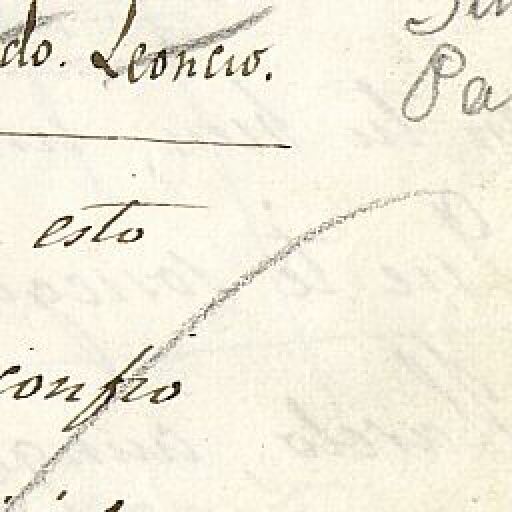 do. Leoncio.
Pa
esto
confio